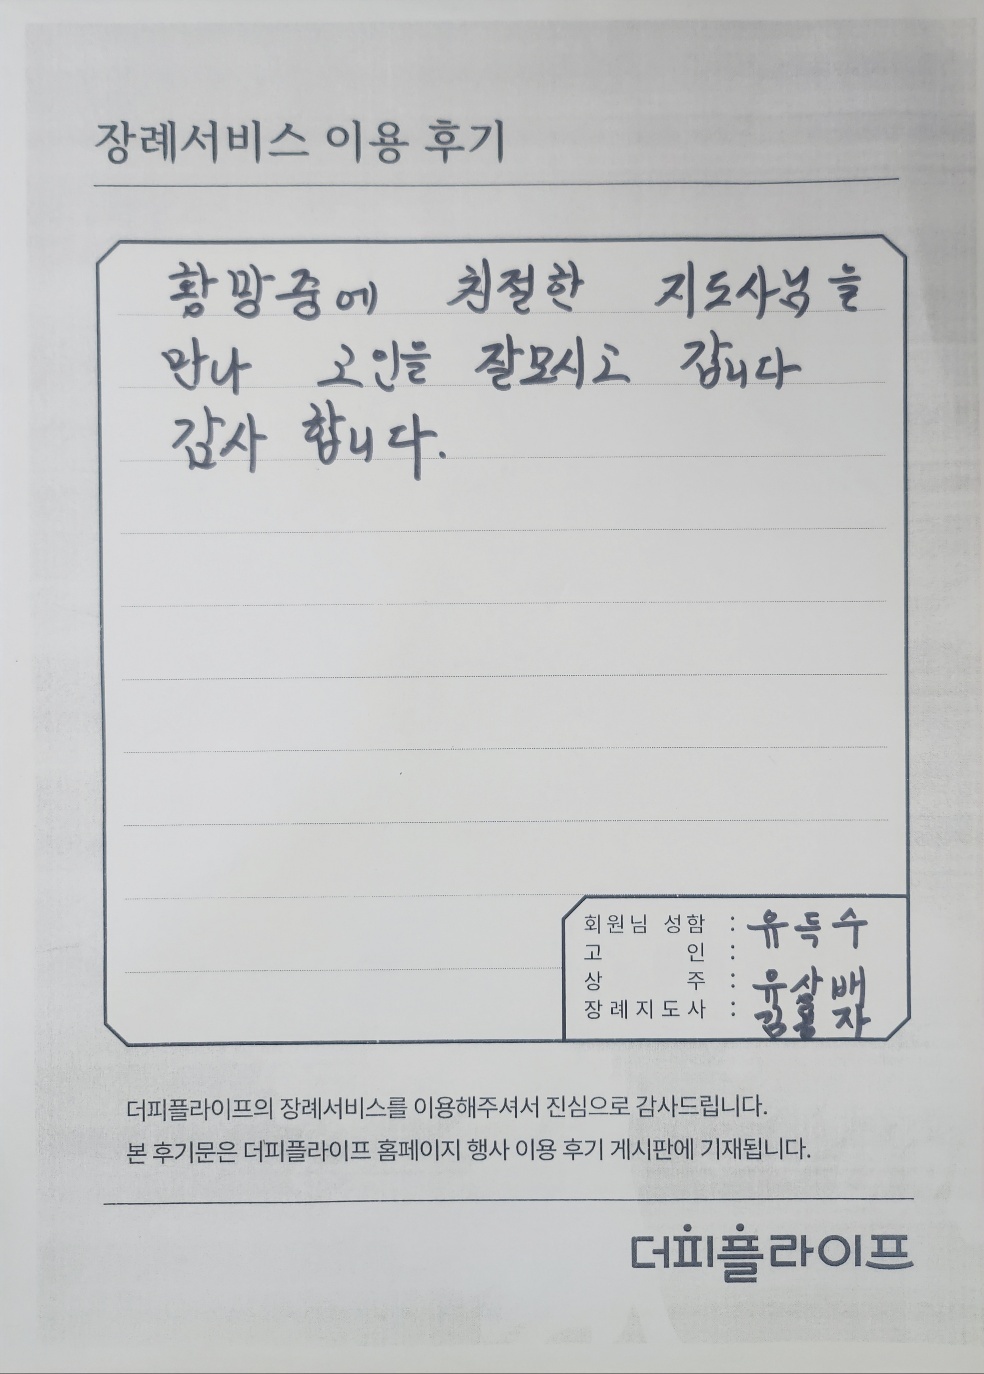 장례서비스 이용 후기
황망중에 친절한 지도사님을
만나 고인을 잘모시고 갑니다
감사 합니다.
회원님 성함 : 유득수
고 인 :
상 주 : 유상배
장례지도사 : 김용자
더피플라이프의 장례서비스를 이용해주셔서 진심으로 감사드립니다.
본 후기문은 더피플라이프 홈페이지 행사 이용 후기 게시판에 기재됩니다.
더피플라이프